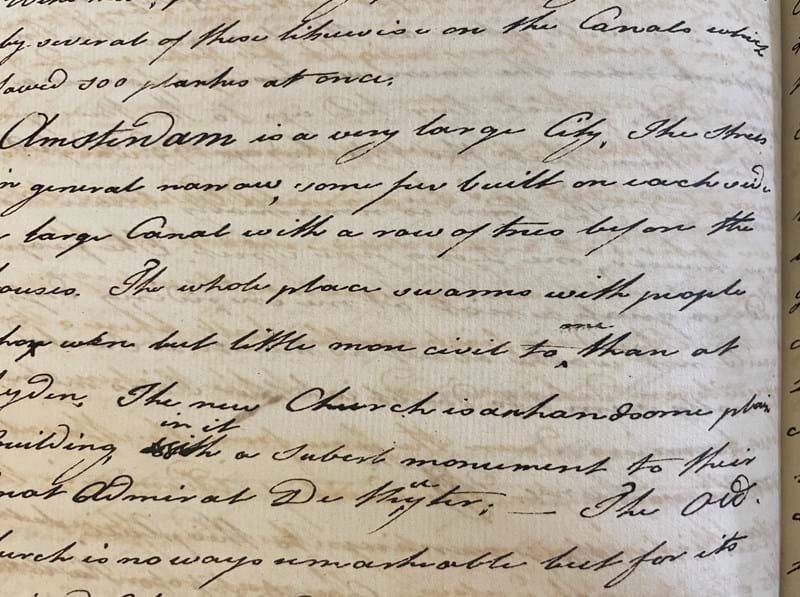 by several of these likewise on the Canals which
sawed 500 planks at once.
Amsterdam is a very large City, The Streets
in general narrow, some few built on each side
large Canal with a row of trees before the
houses. The whole place swarms with people
who were but little more civil to me than at
Leyden, The new Church is an handsome plain
building, in it a Suberb monument to their
great Admiral De Ruyter; — The Old
Church is no ways remarkable but for its